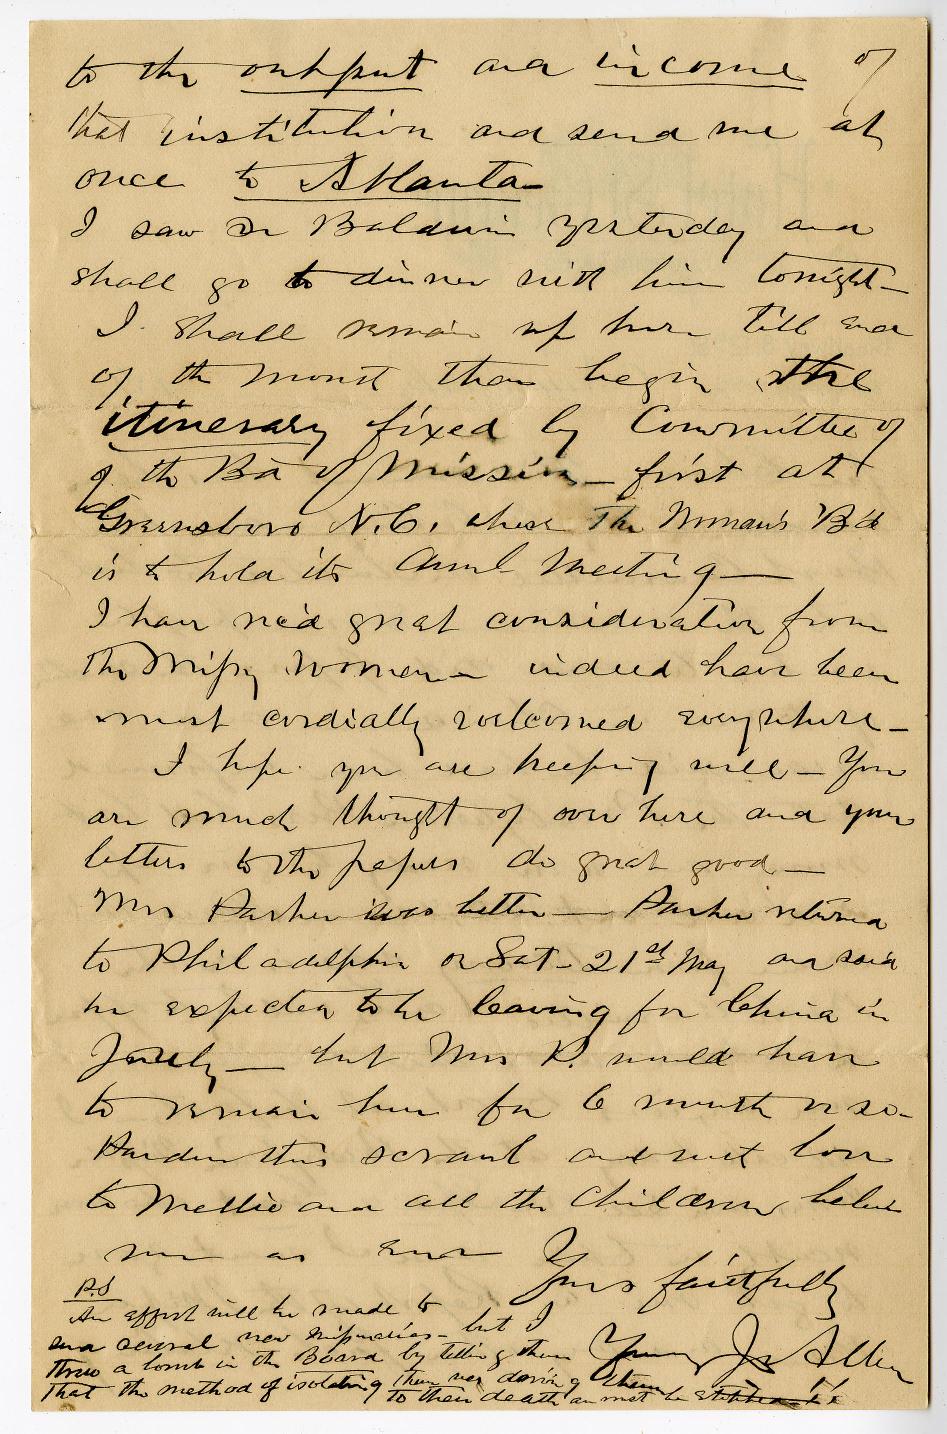 to the output and income of
that institution and send me at
once to Atlanta
I saw Dr Baldwin yesterday and
shall go to dinner with him tonight—
I shall remain up here till end
of the month then begin the
itinerary fixed by Committee of
of the Bd of Missions — first at
Greensboro N.C. where The Woman's B'd
is to hold its Annl Meeting —
I have rec'd great consideration from
the Missy women — indeed have been
most cordially welcomed everywhere —
I hope you are keeping well — You
are much thought of over here and your
letters to the papers do great good —
Mrs Parker was better — Parker returned
to Philadelphia on Sat - 21st May and said
he expected to be leaving for China in
July — but Mrs P. would have
to remain here for 6 months or so -
Pardon this scrawl and with love
to Mellie and all the children believe
me as ever
Yours faithfully
Young J. Allen
P.S
An effort will be made to
send several new missionaries - but I
threw a bomb in the Board by telling them
that the method of isolating them was dooming them
to their death and must be